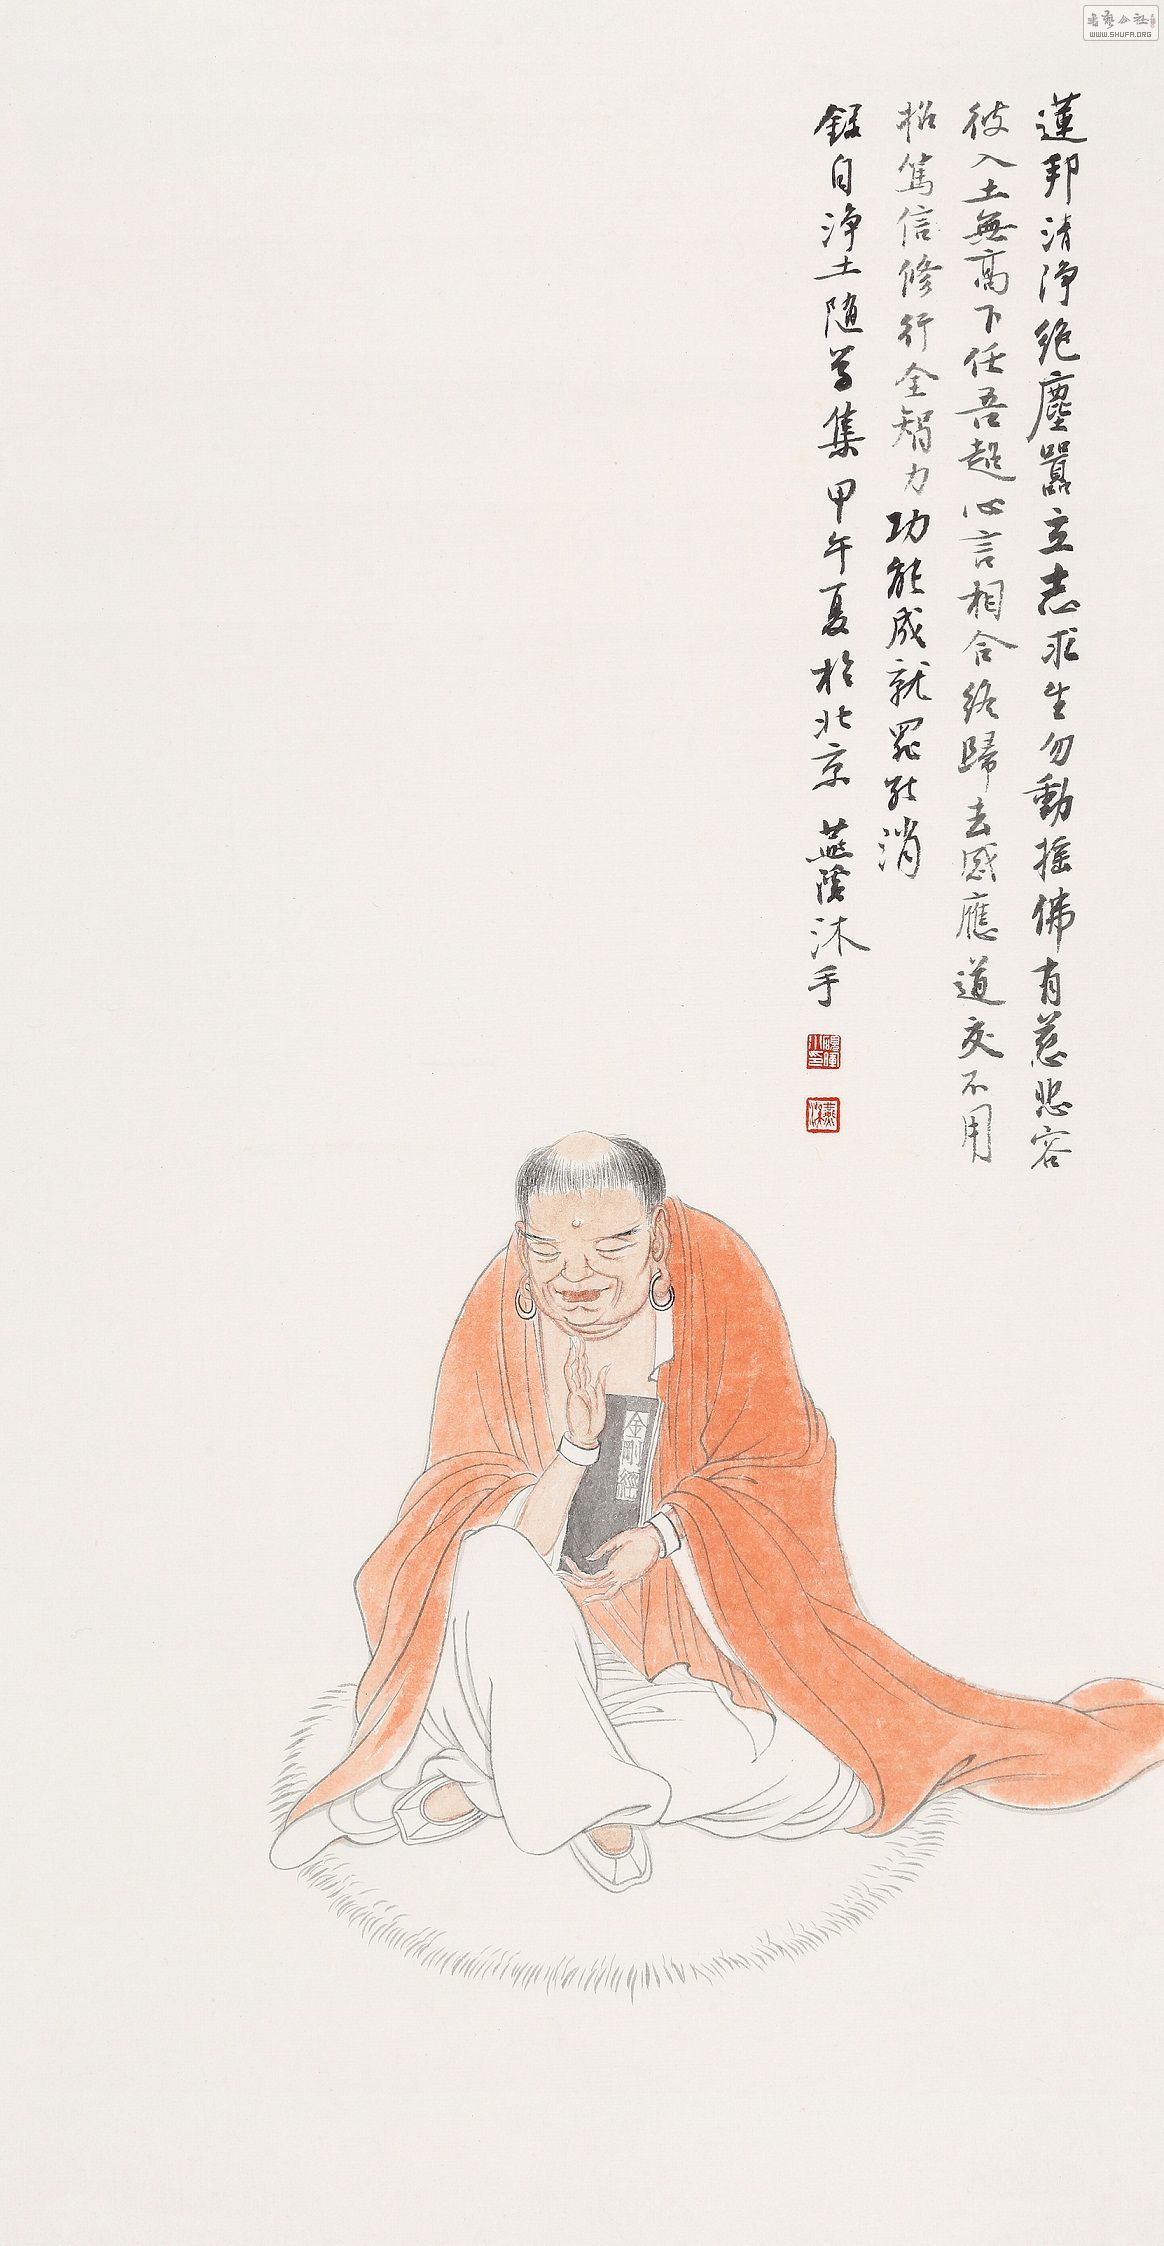 蓮邦清淨絶塵囂立志求生勿動搖佛有慈悲容
彼入土無高下任吾超心言相合終歸去感應道交不用
招篤信修行全智力功能成就罪能消
錄自淨土随學集甲午夏於北京 燕陰沐手
金剛經
書藝公社
WWW.SHUFA.ORG